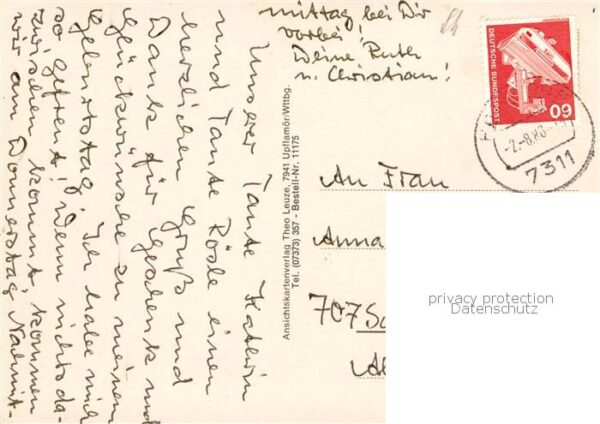 Unserer Tante Kathrin
und Tante Rösle einen
herzlichen Gruß und
Dank für Geschenk und
Glückwünsche zu meinem
Geburtstag. Ich habe mich
so gefreut! Wenn nichts da-
zwischen kommt kommen
wir am Donnerstag Nachmit-
mittag bei Dir
vorbei!
Deine Ruth
u. Christian!
Ansichtskartenverlag Theo Leuze, 7941 Upflamör/Wttbg.
Tel. (07373) 357 - Bestell-Nr. 11175
DEUTSCHE BUNDESPOST
60
7311
An Frau
Anna
707
privacy protection
Datenschutz